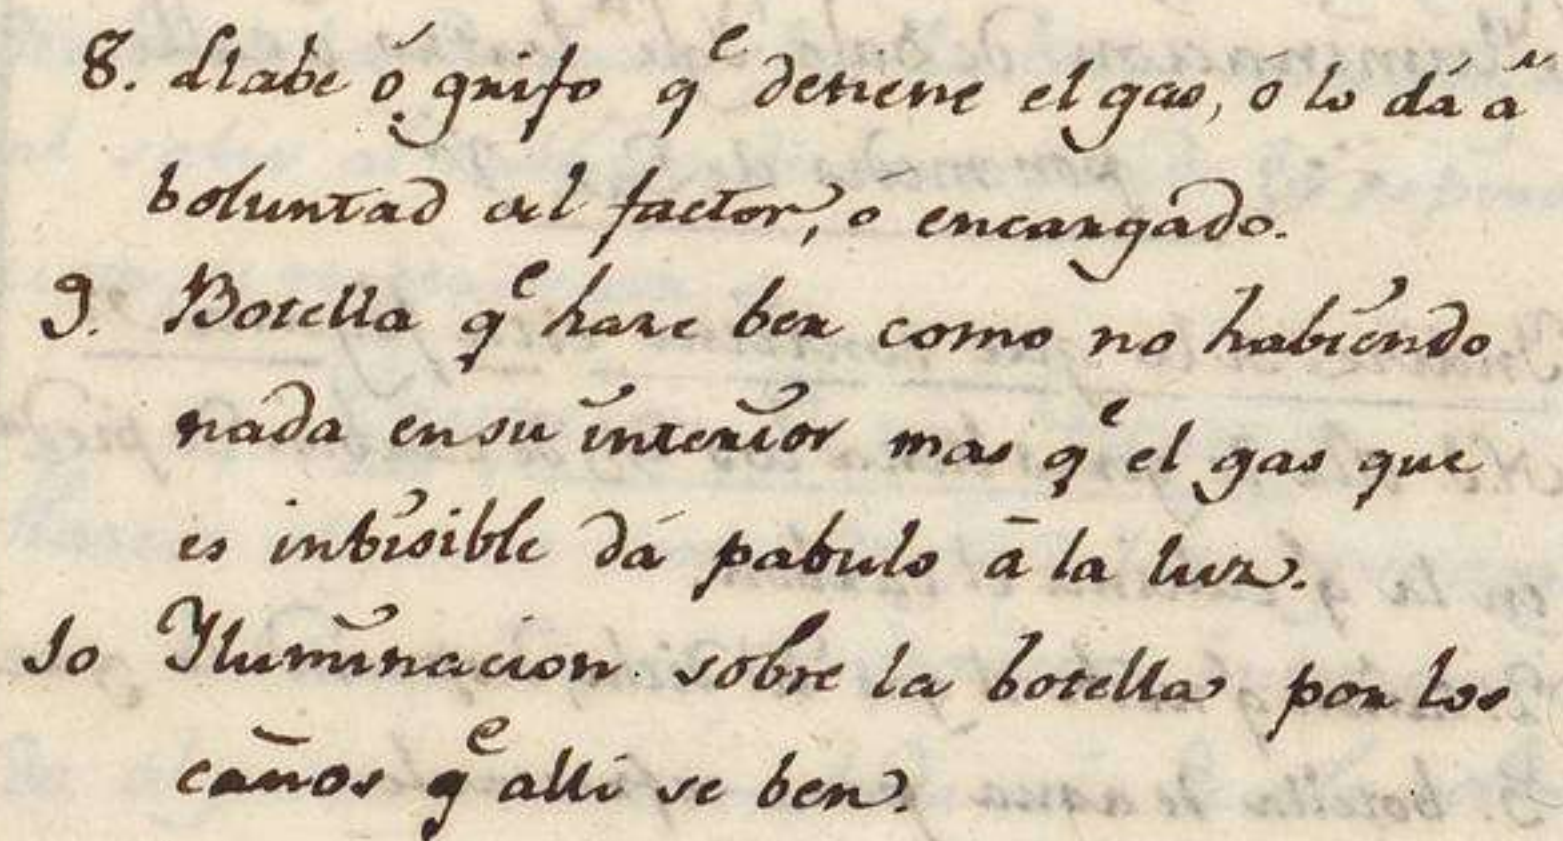 8. Llabe ó grifo qᵉ detiene el gas, ó lo dá á sᵘ
boluntad del factor, o encargado.
9. Botella qᵉ hace ber como no habiendo
nada en su interior mas qᵉ el gas que
es inbisible dá pabulo á la luz.
10 Yluminacion sobre la botella por los
caños qᵉ alli se ben.